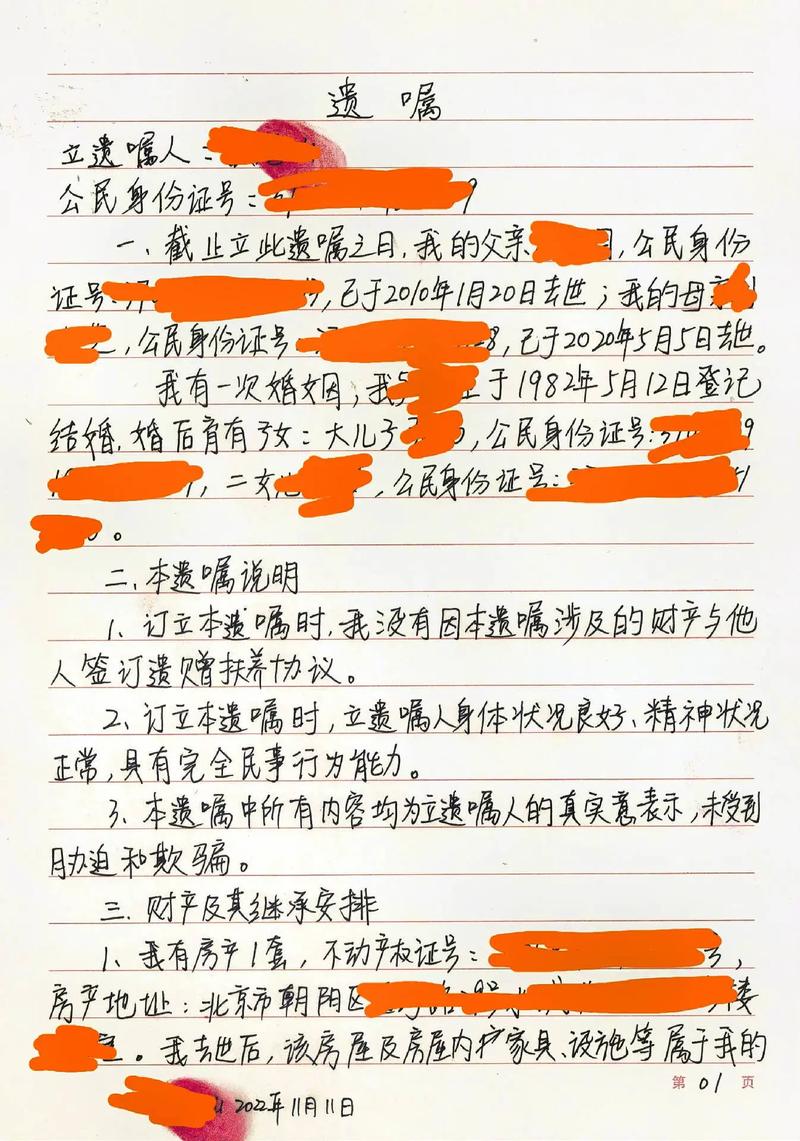 遗嘱
立遗嘱人:
公民身份证号: 9
一、截止立此遗嘱之日,我的父亲 ,公民身份
证号: ,已于2010年1月20日去世;我的母亲
,公民身份证号: 8,已于2020年5月5日去世。
我有一次婚姻,我 于1982年5月12日登记
结婚,婚后育有子女:大儿子 ,公民身份证号: 9
,二女儿 ,公民身份证号: 1
。
二、本遗嘱说明
1、订立本遗嘱时,我没有因本遗嘱涉及的财产与他
人签订遗赠扶养协议。
2、订立本遗嘱时,立遗嘱人身体状况良好、精神状况
正常,具有完全民事行为能力。
3、本遗嘱中所有内容均为立遗嘱人的真实意表示,未受到
胁迫和欺骗。
三、财产及其继承安排
1、我有房产1套,不动产权证号: ,
房产地址:北京市朝阳区 楼
。我去世后,该房屋及房屋内 家具、设施等属于我的
第 01 页
2022年11月11日